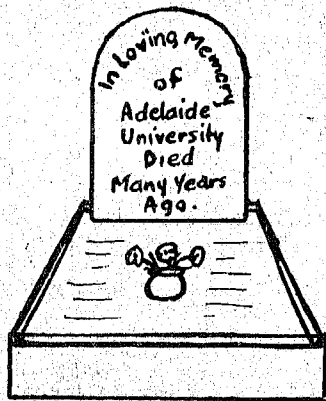 In Loving Memory
of
Adelaide
University
Died
Many Years
Ago.